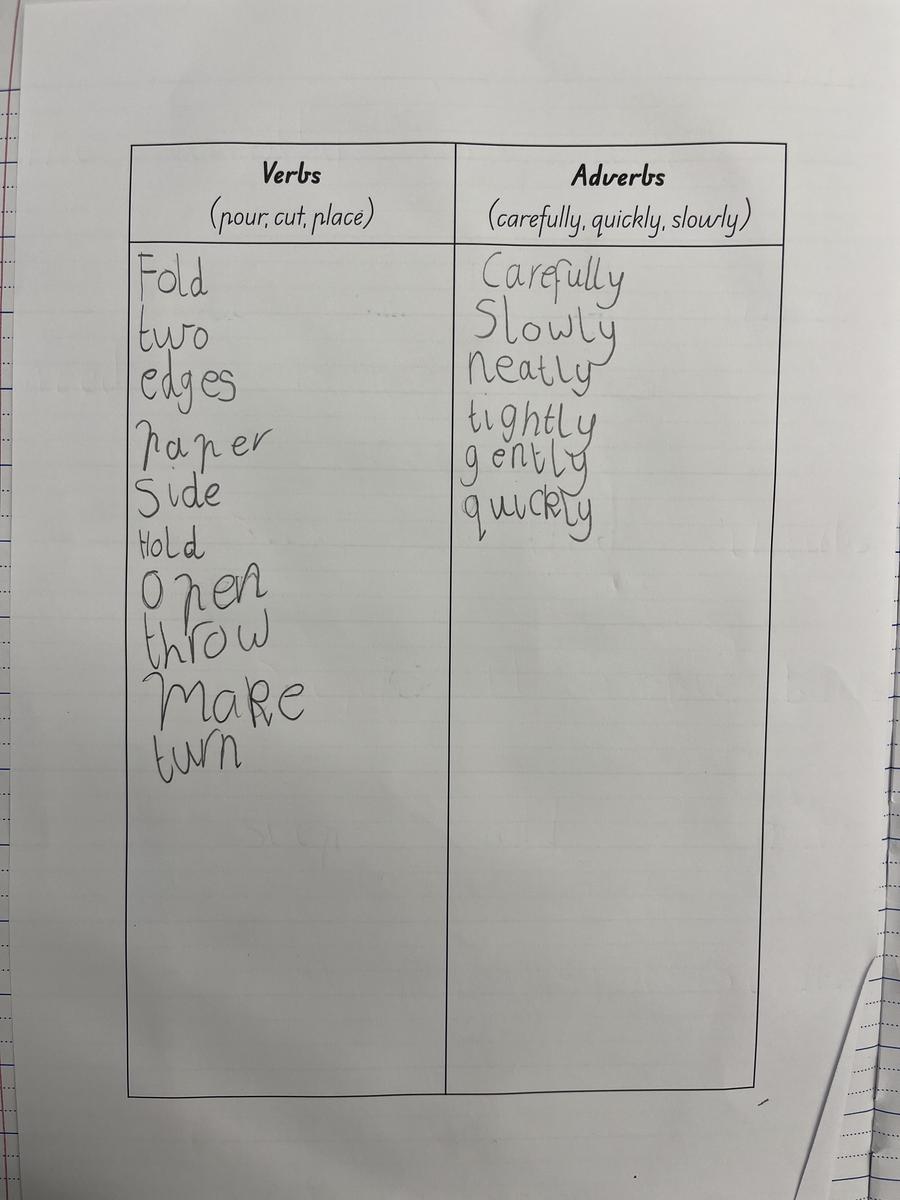 Verbs
(pour, cut, place)
Fold
two
edges
paper
Side
Hold
Open
throw
Make
turn
Adverbs
(carefully, quickly, slowly)
Carefully
Slowly
neatly
tightly
gently
quickly